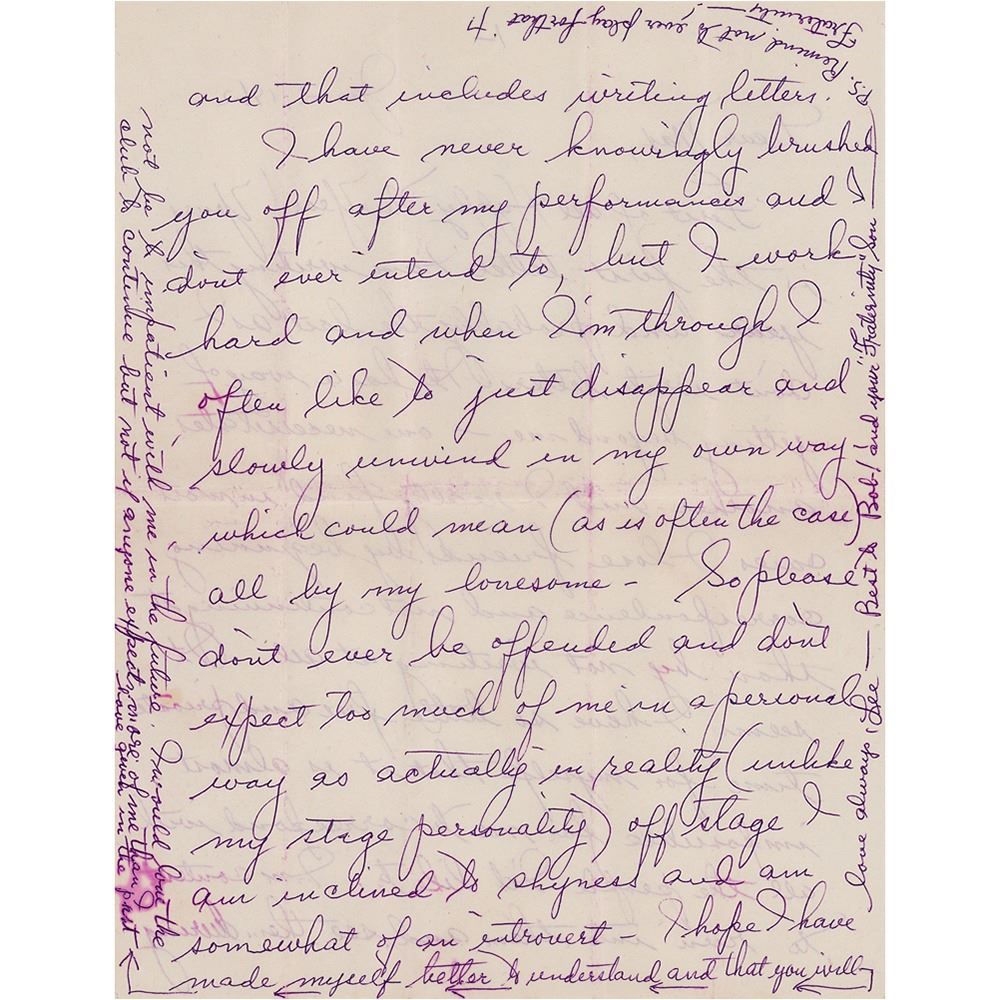 and that includes writing letters.
I have never knowingly brushed
you off after my performances and
dont ever intend to, but I work
hard and when I'm through I
often like to just disappear and
slowly unwind in my own way -
which could mean (as is often the case)
all by my lonesome - So please
don't ever be offended and don't
expect too much of me in a personal
way as actually in reality (unlike
my stage personality) off stage I
am inclined to shyness and am
somewhat of an introvert - I hope I have
made myself better to understand and that you will
not be to impatient with me in the future. I would love the
club to continue but not if anyone expects more of me than I
have given in the past
love always, Lee — Best to Bob! and your "Fraternity" Son
P.S. Remind not to ever play for that
Fraternity —!